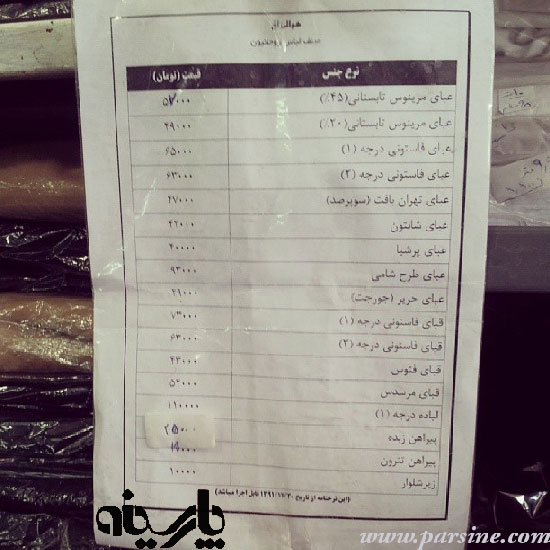 هوالرزاق
صنف لباس روحانیون
نرخ جنس قیمت (تومان)
عبای مرینوس تابستانی(۴۵٪) ۵۷۰۰۰
عبای مرینوس تابستانی(۲۰٪) ۴۹۰۰۰
عبای فاستونی درجه (۱) ۶۵۰۰۰
عبای فاستونی درجه (۲) ۶۳۰۰۰
عبای تهران بافت (سوپرصد) ۴۷۰۰۰
عبای شانتون ۴۲۰۰۰
عبای پرشیا ۴۰۰۰۰
عبای طرح شامی ۹۳۰۰۰
عبای حریر (جورجت) ۲۹۰۰۰
قبای فاستونی درجه (۱) ۷۳۰۰۰
قبای فاستونی درجه (۲) ۶۳۰۰۰
قبای فتوس ۴۳۰۰۰
قبای مرسدس ۵۶۰۰۰
لباده درجه (۱) ۱۱۰۰۰۰
پیراهن زبده ۲۵۰۰۰
پیراهن تترون ۱۹۰۰۰
زیرشلوار ۱۰۰۰۰
(این نرخنامه از تاریخ ۱۳۹۱/۱۲/۲۰ قابل اجرا میباشد)
پارسینه
www.parsine.com